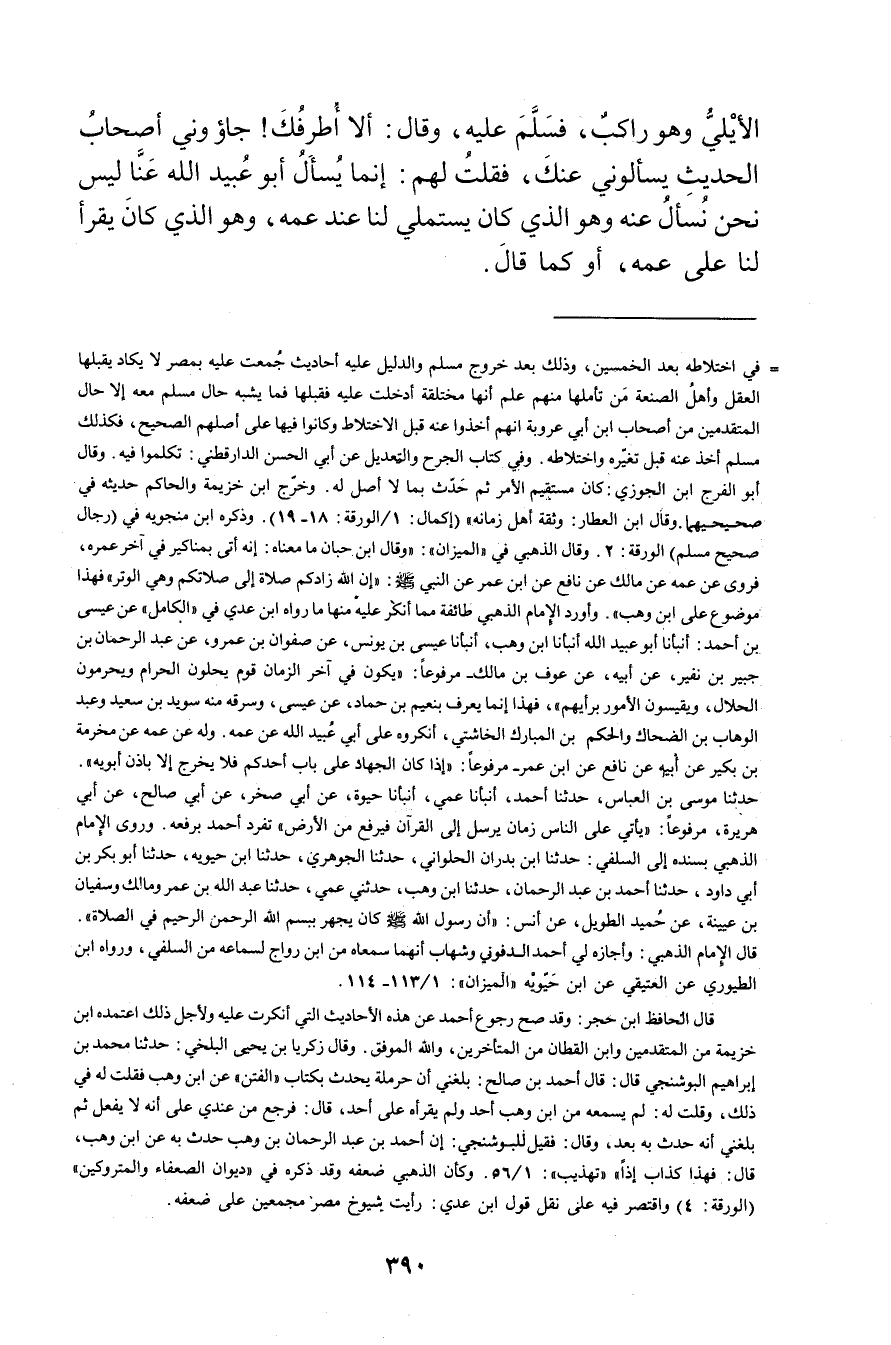 الأيْليُّ وهو راكبٌ، فسَلَّمَ عليه، وقال: ألا أُطرفُكَ! جاؤوني أصحابُ
الحديثِ يسألوني عنكَ، فقلتُ لهم: إنما يُسألُ أبو عُبيد الله عَنَّا ليس
نحن نُسألُ عنه وهو الذي كان يستملي لنا عند عمه، وهو الذي كانَ يقرأ
لنا على عمه، أو كما قالَ.
= في اختلاطه بعد الخمسين، وذلك بعد خروج مسلم والدليل عليه أحاديث جُمعت عليه بمصر لا يكاد يقبلها
العقل وأهلُ الصنعة مَن تأملها منهم علم أنها مختلقة أدخلت عليه فقبلها فما يشبه حال مسلم معه إلا حال
المتقدمين من أصحاب ابن أبي عروبة انهم أخذوا عنه قبل الاختلاط وكانوا فيها على أصلهم الصحيح، فكذلك
مسلم أخذ عنه قبل تغيّره واختلاطه. وفي كتاب الجرح والتعديل عن أبي الحسن الدارقطني: تكلموا فيه. وقال
أبو الفرج ابن الجوزي: كان مستقيم الأمر ثم حَدّث بما لا أصل له. وخرّج ابن خزيمة والحاكم حديثه في
صحيحيهما. وقال ابن العطار: وثقة أهل زمانه» (إكمال: ١/الورقة: ١٨- ١٩). وذكره ابن منجويه في (رجال
صحيح مسلم) الورقة: ٢. وقال الذهبي في «الميزان»: «وقال ابن حبان ما معناه: إنه أتى بمناكير في آخر عمره،
فروى عن عمه عن مالك عن نافع عن ابن عمر عن النبي ﷺ: «إن الله زادكم صلاة إلى صلاتكم وهي الوتر» فهذا
موضوع على ابن وهب». وأورد الإمام الذهبي طائفة مما أنكر عليه منها ما رواه ابن عدي في «الكامل» عن عيسى
بن أحمد: أنبأنا أبو عبيد الله أنبأنا ابن وهب، أنبأنا عيسى بن يونس، عن صفوان بن عمرو، عن عبد الرحمان بن
جبير بن نفير، عن أبيه، عن عوف بن مالك- مرفوعاً: «يكون في آخر الزمان قوم يحلون الحرام ويحرمون
الحلال، ويقيسون الأمور برأيهم»، فهذا إنما يعرف بنعيم بن حماد، عن عيسى، وسرقه منه سويد بن سعيد وعبد
الوهاب بن الضحاك والحكم بن المبارك الخاشتي، أنكروه على أبي عُبيد الله عن عمه. وله عن عمه عن مخرمة
بن بكير عن أبيه عن نافع عن ابن عمر- مرفوعاً: «إذا كان الجهاد على باب أحدكم فلا يخرج إلا باذن أبويه».
حدثنا موسى بن العباس، حدثنا أحمد، أنبأنا عمي، أنبأنا حيوة، عن أبي صخر، عن أبي صالح، عن أبي
هريرة، مرفوعاً: «يأتي على الناس زمان يرسل إلى القرآن فيرفع من الأرض» تفرد أحمد برفعه. وروى الإمام
الذهبي بسنده إلى السلفي: حدثنا ابن بدران الحلواني، حدثنا الجوهري، حدثنا ابن حيويه، حدثنا أبو بكر بن
أبي داود، حدثنا أحمد بن عبد الرحمان، حدثنا ابن وهب، حدثني عمي، حدثنا عبد الله بن عمر ومالك وسفيان
بن عيينة، عن حُميد الطويل، عن أنس: «أن رسول الله ﷺ كان يجهر ببسم الله الرحمن الرحيم في الصلاة».
قال الإمام الذهبي: وأجازه لي أحمد الدفوني وشهاب أنهما سمعاه من ابن رواج لسماعه من السلفي، ورواه ابن
الطيوري عن العتيقي عن ابن حَيّويْه «الميزان»: ١١٣/١- ١١٤.
قال الحافظ ابن حجر: وقد صح رجوع أحمد عن هذه الأحاديث التي أنكرت عليه ولأجل ذلك اعتمده ابن
خزيمة من المتقدمين وابن القطان من المتأخرين، والله الموفق. وقال زكريا بن يحيى البلخي: حدثنا محمد بن
إبراهيم البوشنجي قال: قال أحمد بن صالح: بلغني أن حرملة يحدث بكتاب «الفتن» عن ابن وهب فقلت له في
ذلك، وقلت له: لم يسمعه من ابن وهب أحد ولم يقرأه على أحد، قال: فرجع من عندي على أنه لا يفعل ثم
بلغني أنه حدث به بعد، وقال: فقيل للبوشنجي: إن أحمد بن عبد الرحمان بن وهب حدث به عن ابن وهب،
قال: فهذا كذاب إذاً» «تهذيب»: ٥٦/١. وكأن الذهبي ضعفه وقد ذكره في «ديوان الضعفاء والمتروكين»
(الورقة: ٤) واقتصر فيه على نقل قول ابن عدي: رأيت شيوخ مصر مجمعين على ضعفه.
٣٩٠